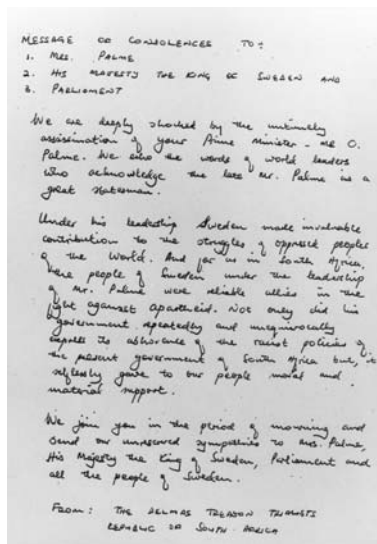 MESSAGE OF CONDOLENCES TO:
1. MRS. PALME
2. HIS MAJESTY THE KING OF SWEDEN AND
3. PARLIAMENT
We are deeply shocked by the untimely
assassination of your Prime Minister - Mr O.
Palme. We echo the words of world leaders
who acknowledge the late Mr. Palme as a
great statesman.
Under his leadership Sweden made invaluable
contribution to the struggles of oppressed peoples
of the world. And for us in South Africa,
the people of Sweden under the leadership
of Mr. Palme were reliable allies in the
fight against apartheid. Not only did his
government repeatedly and unequivocally
express its abhorance of the racist policies of
the present government of South Africa but, it
selflessly gave to our people moral and
material support.
We join you in the period of mourning and
send our unreserved sympathies to Mrs. Palme,
His Majesty the King of Sweden, Parliament and
all the people of Sweden.
FROM: THE DELMAS TREASON TRIALISTS
REPUBLIC OF SOUTH AFRICA